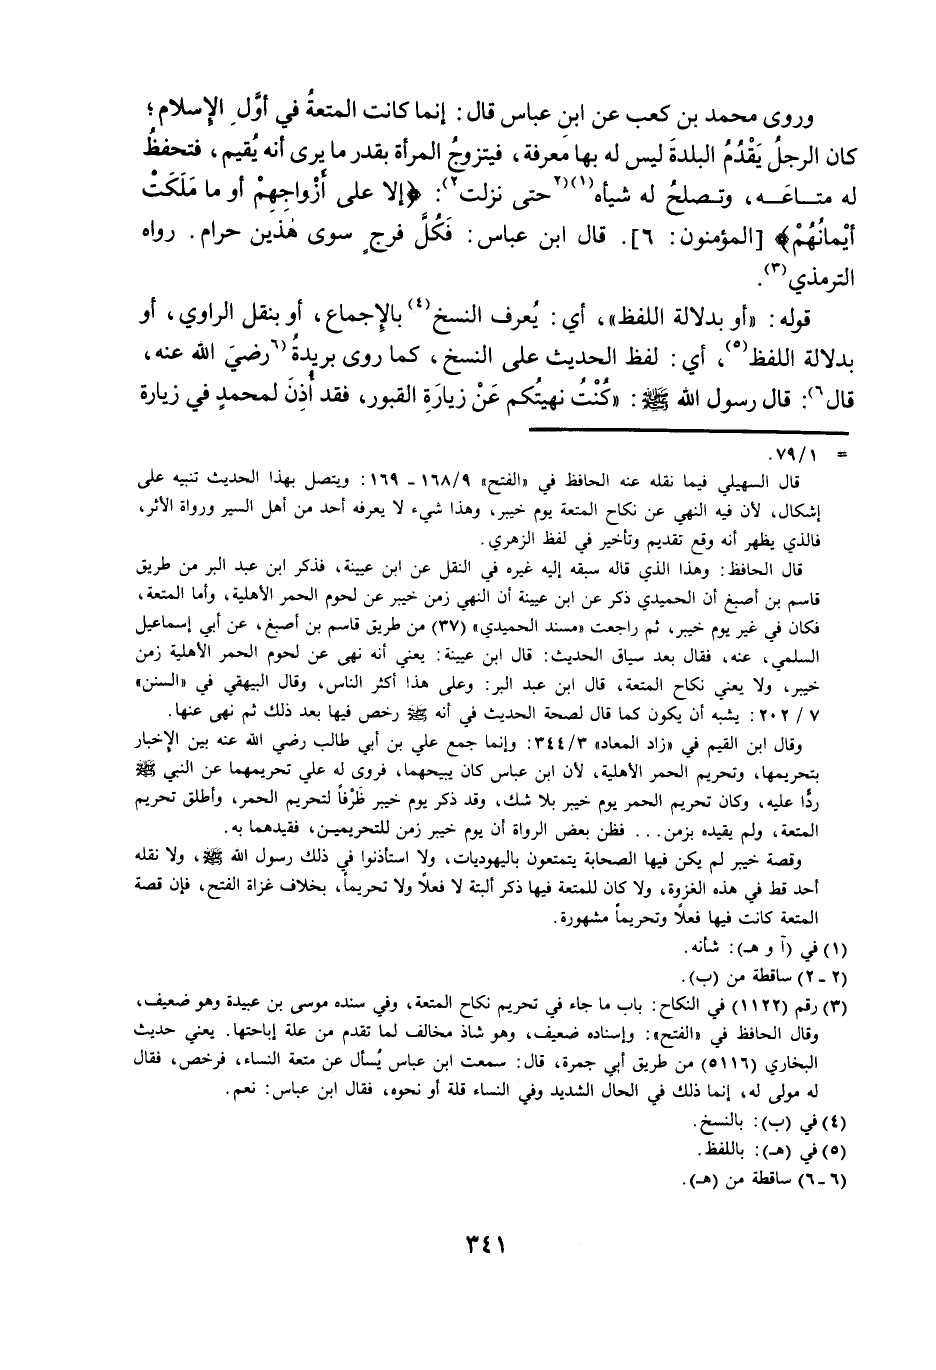 وروى محمد بن كعب عن ابن عباس قال: إنما كانت المتعةُ في أوَّلِ الإسلام؛
كان الرجلُ يَقْدُمُ البلدةَ ليس له بها مَعرفة، فيتزوجُ المرأة بقدر ما يرى أنه يُقيم، فتحفظُ
له متاعَه، وتصلحُ له شيأه(١)(٢حتى نزلت٢): ﴿إلا على أَزْواجِهِمْ أو ما مَلَكَتْ
أيْمانُهُمْ﴾ [المؤمنون: ٦]. قال ابن عباس: فَكُلَّ فرجٍ سوى هٰذين حرام. رواه
الترمذي(٣).
قوله: «أو بدلالة اللفظ»، أي: يُعرف النسخ(٤) بالإجماع، أو بنقل الراوي، أو
بدلالة اللفظ(٥)، أي: لفظ الحديث على النسخ، كما روى بريدةُ(٦رضيَ الله عنه،
قال٦): قال رسول الله ﷺ: «كُنْتُ نهيتُكم عَنْ زيارَةِ القبور، فقد أُذِنَ لمحمدٍ في زيارة
= ٧٩/١.
قال السهيلي فيما نقله عنه الحافظ في «الفتح» ١٦٨/٩ - ١٦٩: ويتصل بهذا الحديث تنبيه على
إشكال، لأن فيه النهي عن نكاح المتعة يوم خيبر، وهذا شيء لا يعرفه أحد من أهل السير ورواة الأثر،
فالذي يظهر أنه وقع تقديم وتأخير في لفظ الزهري.
قال الحافظ: وهذا الذي قاله سبقه إليه غيره في النقل عن ابن عيينة، فذكر ابن عبد البر من طريق
قاسم بن أصبغ أن الحميدي ذكر عن ابن عيينة أن النهي زمن خيبر عن لحوم الحمر الأهلية، وأما المتعة،
فكان في غير يوم خيبر، ثم راجعت «مسند الحميدي» (٣٧) من طريق قاسم بن أصبغ، عن أبي إسماعيل
السلمي، عنه، فقال بعد سياق الحديث: قال ابن عيينة: يعني أنه نهى عن لحوم الحمر الأهلية زمن
خيبر، ولا يعني نكاح المتعة، قال ابن عبد البر: وعلى هذا أكثر الناس، وقال البيهقي في «السنن»
٧ / ٢٠٢: يشبه أن يكون كما قال لصحة الحديث في أنه ﷺ رخص فيها بعد ذلك ثم نهى عنها.
وقال ابن القيم في «زاد المعاد» ٣٤٤/٣: وإنما جمع علي بن أبي طالب رضي الله عنه بين الإخبار
بتحريمها، وتحريم الحمر الأهلية، لأن ابن عباس كان يبيحهما، فروى له علي تحريمهما عن النبي ﷺ
ردًّا عليه، وكان تحريم الحمر يوم خيبر بلا شك، وقد ذكر يوم خيبر ظَرْفاً لتحريم الحمر، وأطلق تحريم
المتعة، ولم يقيده بزمن... فظن بعض الرواة أن يوم خيبر زمن للتحريمين، فقيدهما به.
وقصة خيبر لم يكن فيها الصحابة يتمتعون باليهوديات، ولا استأذنوا في ذلك رسول الله ﷺ، ولا نقله
أحد قط في هذه الغزوة، ولا كان للمتعة فيها ذكر ألبتة لا فعلاً ولا تحريماً، بخلاف غزاة الفتح، فإن قصة
المتعة كانت فيها فعلاً وتحريماً مشهورة.
(١) في (آ و هـ): شأنه.
(٢ - ٢) ساقطة من (ب).
(٣) رقم (١١٢٢) في النكاح: باب ما جاء في تحريم نكاح المتعة، وفي سنده موسى بن عبيدة وهو ضعيف،
وقال الحافظ في «الفتح»: وإسناده ضعيف، وهو شاذ مخالف لما تقدم من علة إباحتها. يعني حديث
البخاري (٥١١٦) من طريق أبي جمرة، قال: سمعت ابن عباس يُسأل عن متعة النساء، فرخص، فقال
له مولى له، إنما ذلك في الحال الشديد وفي النساء قلة أو نحوه، فقال ابن عباس: نعم.
(٤) في (ب): بالنسخ.
(٥) في (هـ): باللفظ.
(٦ - ٦) ساقطة من (هـ).
٣٤١